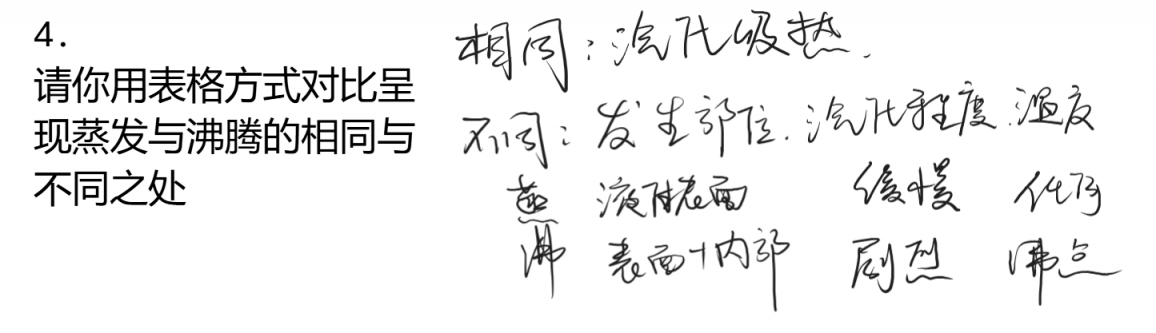 4.
请你用表格方式对比呈
现蒸发与沸腾的相同与
不同之处
相同：汽化吸热.
不同：发生部位.汽化程度.温度
蒸 液体表面 缓慢 任何
沸 表面+内部 剧烈 沸点